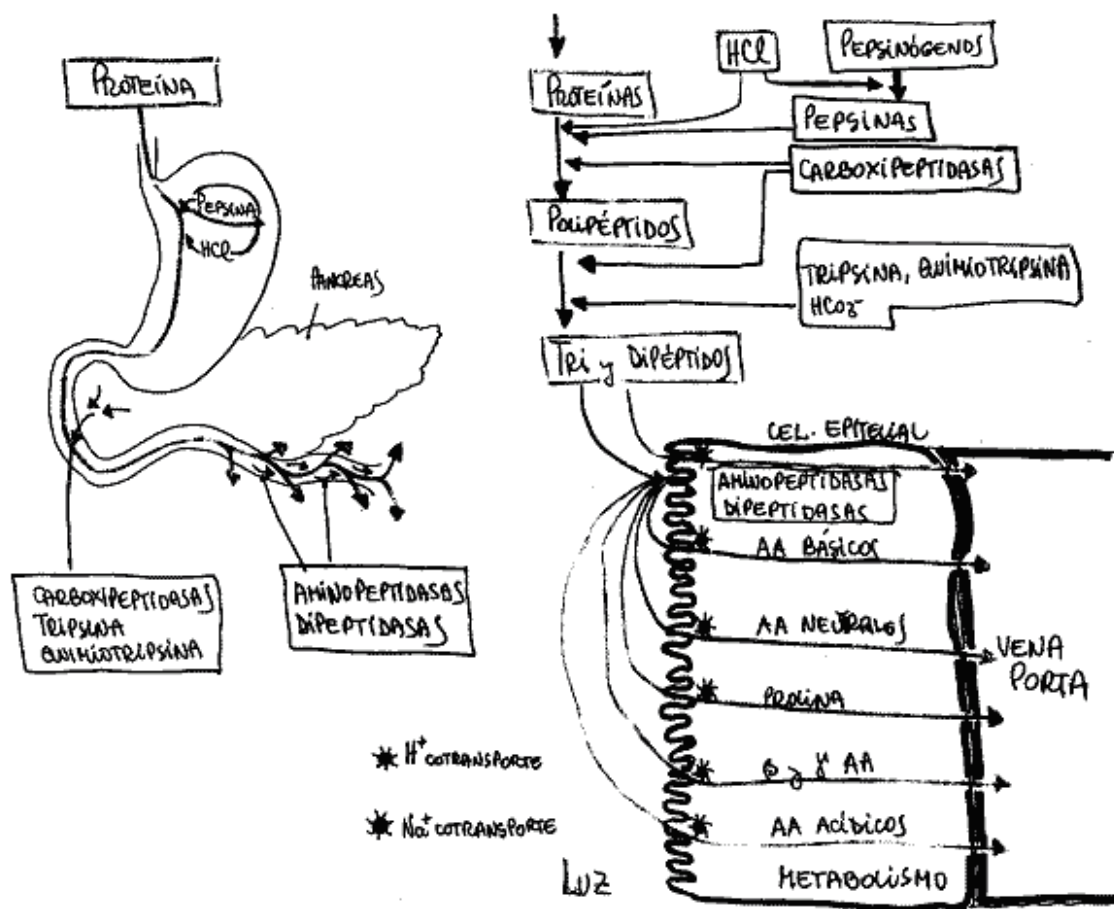 PROTEÍNA
PEPSINA
HCl
PÁNCREAS
CARBOXIPEPTIDASAS
TRIPSINA
QUIMIOTRIPSINA
AMINOPEPTIDASAS
DIPEPTIDASAS
* H+ COTRANSPORTE
* Na+ COTRANSPORTE
HCl
PEPSINÓGENOS
PROTEÍNAS
PEPSINAS
CARBOXIPEPTIDASAS
POLIPÉPTIDOS
TRIPSINA, QUIMIOTRIPSINA
HCO3-
TRI y DIPÉPTIDOS
CEL. EPITELIAL
AMINOPEPTIDASAS
DIPEPTIDASAS
AA BÁSICOS
AA NEUTRALOS
PROLINA
β y γ AA
AA ACÍDICOS
METABOLISMO
LUZ
VENA
PORTA